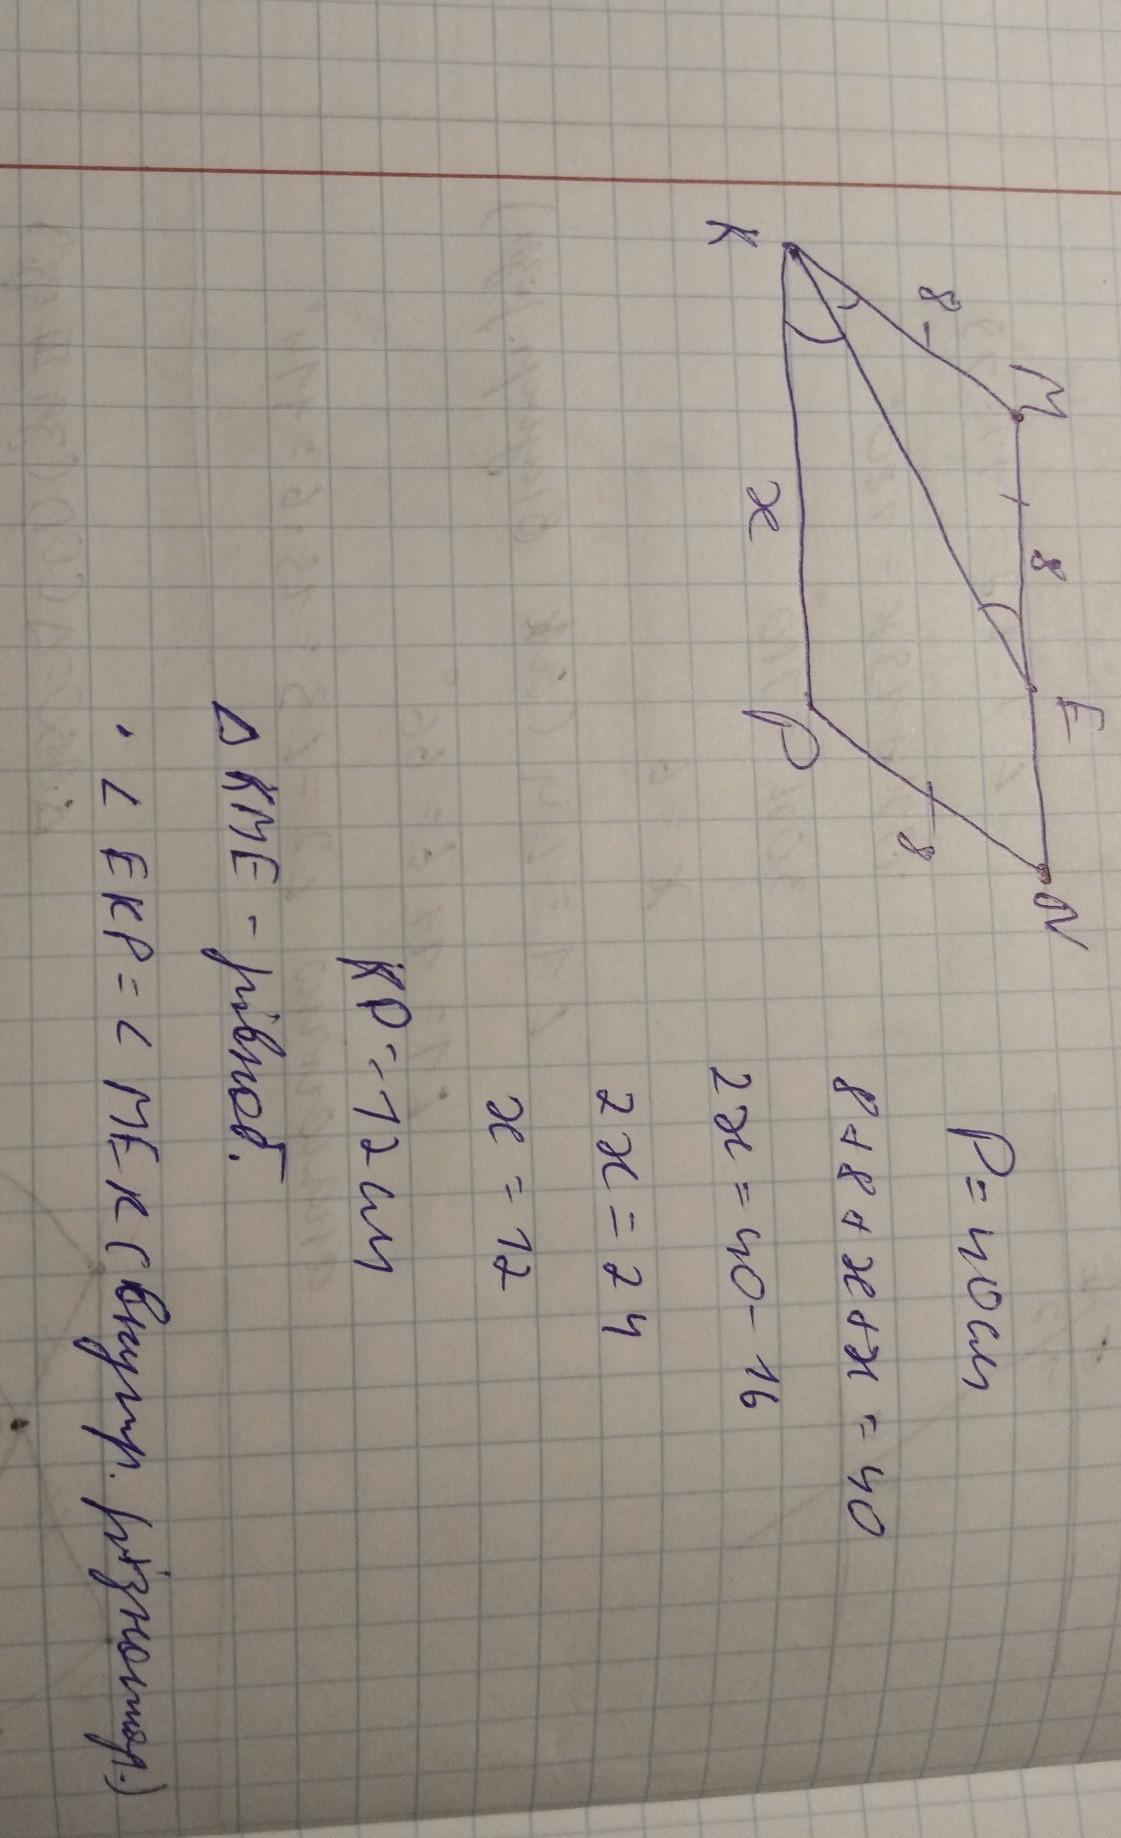 M 8 E N
8 8
K x P
P = 40 см
8+8+x+x = 40
2x = 40-16
2x = 24
x = 12
KP = 12 см
Δ KME - рівноб.
· ∠ EKP = ∠ MEK (внутр. різностор.)